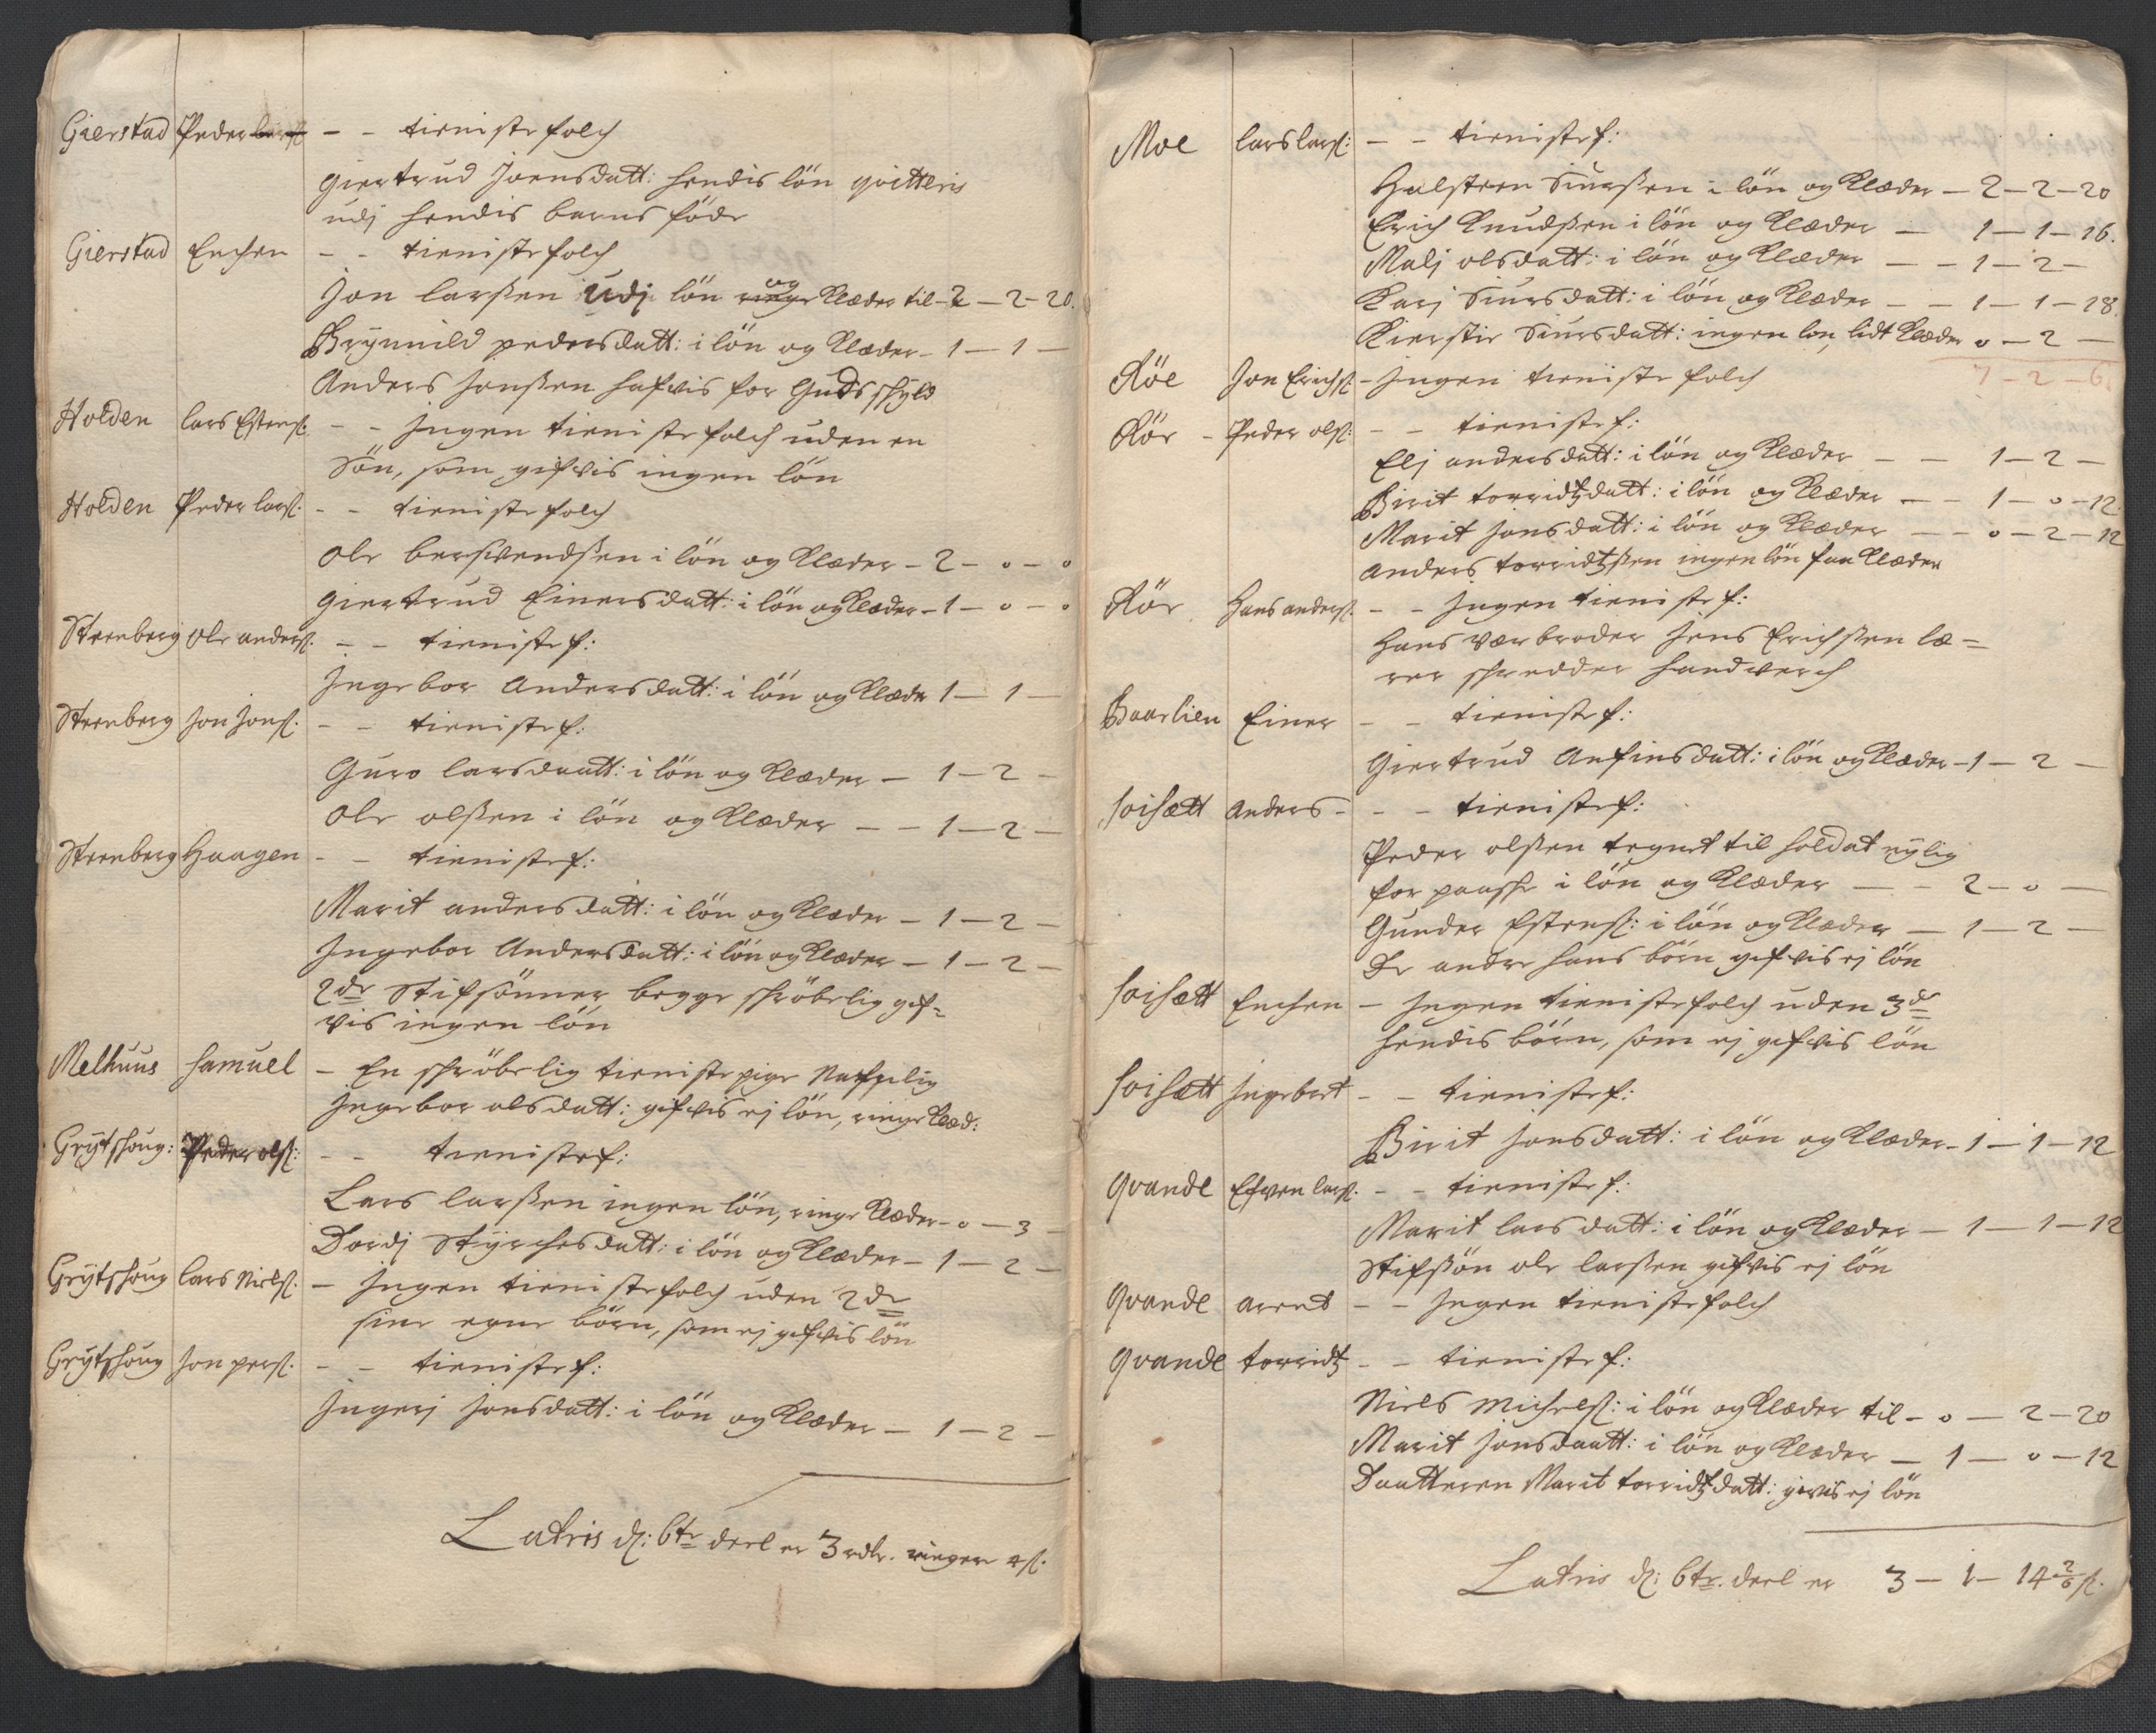 Gierstad Peder - - tieniste folch
Giertrud Joensdatt: hendis lön qvitteris
udj hendis barns föde
Gierstad Enchen - - tieniste folch
Jon larßen udj lön og Klæder til - 2 - 2 - 20.
Brynnild pedersdatt: i lön og Klæder - 1 - 1 -
Anders Jonßen hafvis for Guds skyld
Holden lars Estensß: - - Ingen tieniste folch uden en
Sön, som gifvis ingen lön
Holden Peder larsß: - - tieniste folch
Ole berswendßen i lön og Klæder - 2 - 0 - 0
Giertrud Einersdatt: i lön og Klæder - 1 - 0 - 0
Steenberg Ole andersß: - - tieniste f:
Ingebor Andersdatt: i lön og Klæder 1 - 1 -
Steenberg Jon Jonsß: - - tieniste f:
Guro larsdaatt: i lön og Klæder - 1 - 2 -
Ole olßen i lön og Klæder - - 1 - 2 -
Steenberg Haagen - - tieniste f:
Marit andersdatt: i lön og Klæder - 1 - 2 -
Ingebor Andersdatt: i lön og Klæder - 1 - 2 -
2de Stifsönner begge skröbelig gif=
vis ingen lön
Melhuus Samuel - En skröbelig tieniste pige
Ingebor olsdatt: gifvis ej lön, ringe Klæd:
Grÿtshoug: Peder olsß: - - tieniste f:
Lars larßen ingen lön, ringe Klæder - 0 - 3 -
Dordj Stÿrchersdatt: i lön og Klæder - 1 - 2 -
Grÿtshoug lars Nielsß: - Ingen tieniste folch uden 2de
sine egne börn, som ej gifvis lön
Grÿtshoug Jon persß: - - tieniste f:
Ingerj Jonsdatt: i lön og Klæder - 1 - 2 -
Latris ds: 6te deel er 3 rdlr. ringere 4 ß.
Moe lars larsß: - - tieniste f:
Halsteen Siurßen i lön og Klæder - 2 - 2 - 20
Erich Knudßen i lön og Klæder - 1 - 1 - 16.
Malj olsdatt: i lön og Klæder - - 1 - 2 -
Karj Siursdatt: i lön og Klæder - - 1 - 1 - 18.
Kierstie Siursdatt: ingen lön, lidt Klæder 0 - 2 -
7 - 2 - 6.
Röe Jon Erichsß: - Ingen tieniste folch
Rör - Peder olsß: - - tieniste f:
Elj andersdatt: i lön og Klæder - - 1 - 2 -
Birit torridtzdatt: i lön og Klæder - - 1 - 0 - 12.
Marit Jonsdatt: i lön og Klæder - - 0 - 2 - 12
Anders torridtzßen ingen lön faa Klæder
Rör Hans andersß: - - Ingen tieniste f:
Hans værbroder Jens Erichßen læ=
rer skredder handverch
Baarlien Einer - - tieniste f:
Giertrud Anfinsdatt: i lön og Klæder - 1 - 2 -
Soisætt Anders - - - tieniste f:
Peder olßen tegnet til soldat nÿlig
for paaske i lön og Klæder - - 2 - 0 -
Gunder Estensß: i lön og Klæder - 1 - 2 -
De andre hans börn gifvis ej lön
Soisætt Enchen - Ingen tieniste folch uden 3de
hendis börn, som ej gifvis lön
Soisætt Ingebret - - tieniste f:
Birit Jonsdatt: i lön og Klæder - 1 - 1 - 12
Qvande larsß: - - tieniste f:
Marit larsdatt: i lön og Klæder - 1 - 1 - 12
Stifsön ole larßen gifvis ej lön
Qvande arent - - Ingen tieniste folch
Qvande torridtz - - tieniste f:
Niels Michelsß: i lön og Klæder til - 0 - 2 - 20
Marit Jonsdaatt: i lön og Klæder - 1 - 0 - 12
Daatteren Marit torridtzdatt: givis ej lön
Latris ds: 6te. deel er 3 - 1 - 14 2/6 ß.